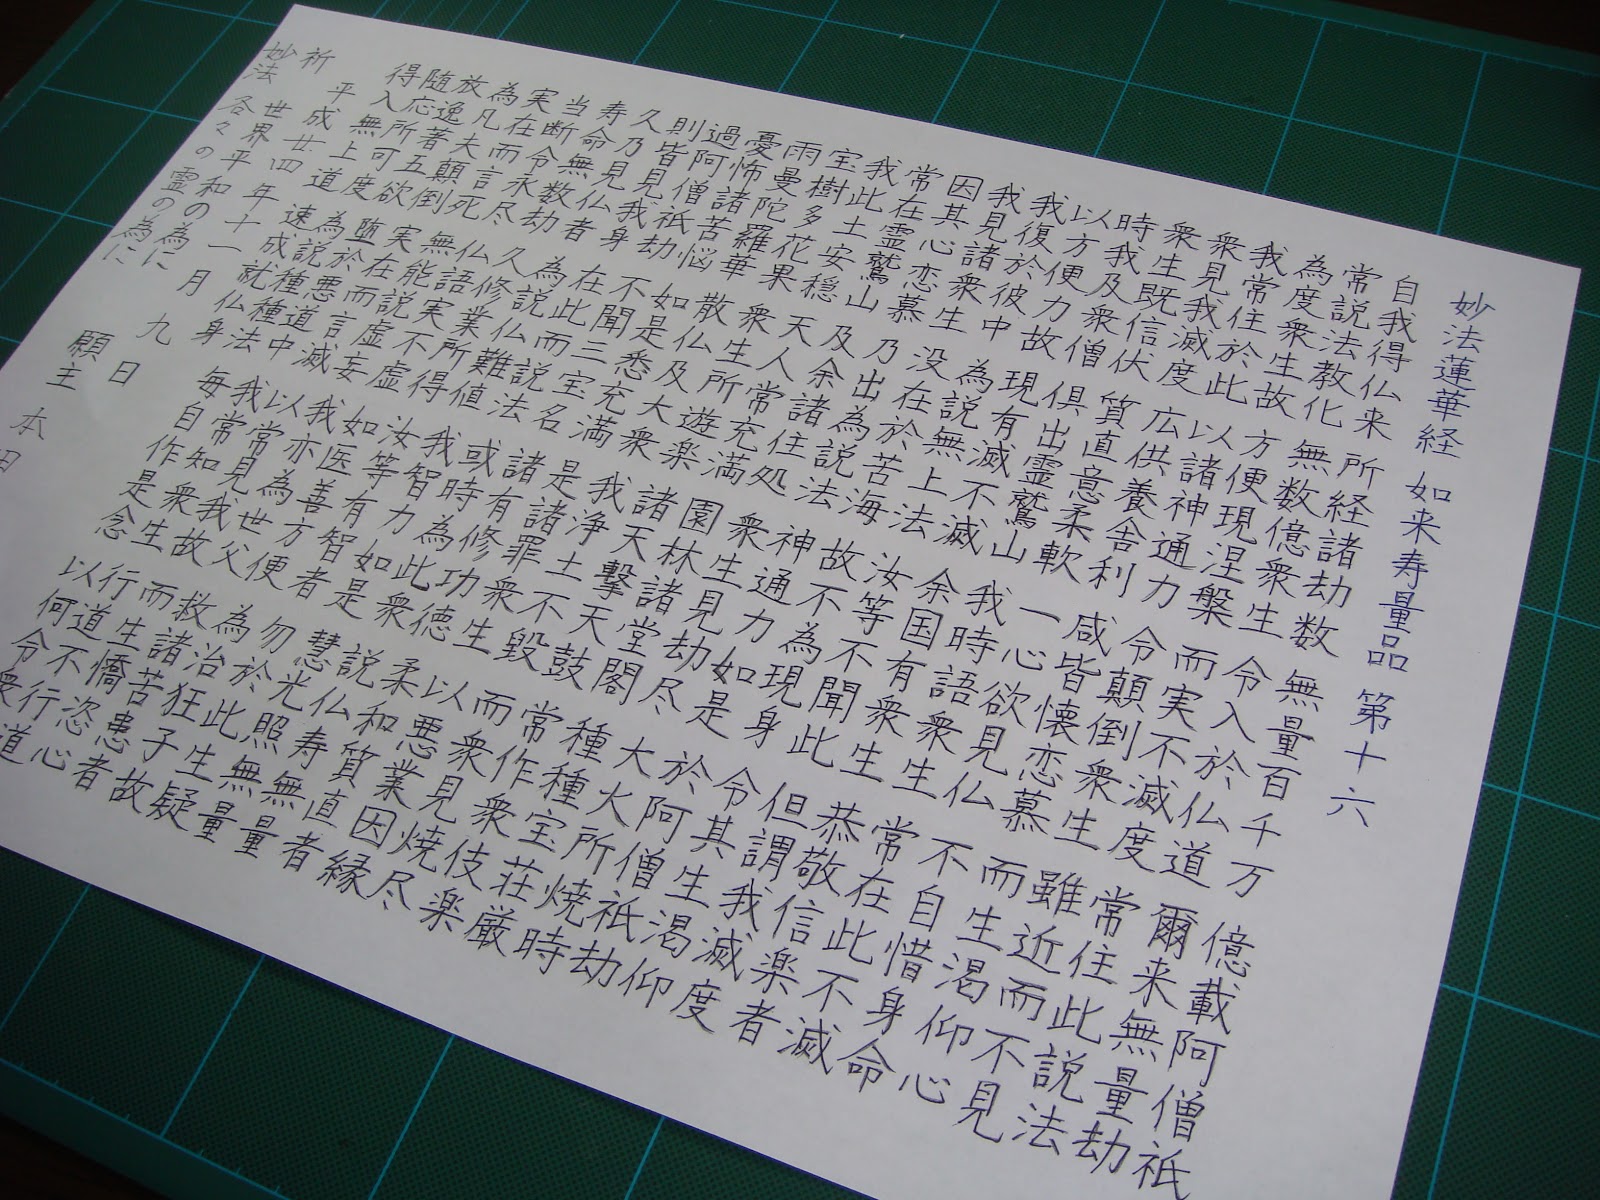 妙法蓮華経 如来寿量品 第十六
自我得仏来 所経諸劫数 無量百千万 億載阿僧祇
常説法教化 無数億衆生 令入於仏道 爾来無量劫
為度衆生故 方便現涅槃 而実不滅度 常住此説法
我常住於此 以諸神通力 令顛倒衆生 雖近而不見
衆見我滅度 広供養舎利 咸皆懐恋慕 而生渇仰心
衆生既信伏 質直意柔軟 一心欲見仏 不自惜身命
時我及衆僧 倶出霊鷲山 我時語衆生 常在此不滅
以方便力故 現有滅不滅 余国有衆生 恭敬信楽者
我復於彼中 為説無上法 汝等不聞此 但謂我滅度
我見諸衆生 没在於苦海 故不為現身 令其生渇仰
因其心恋慕 乃出為説法 神通力如是 於阿僧祇劫
常在霊鷲山 及余諸住処 衆生見劫尽 大火所焼時
我此土安穏 天人常充満 園林諸堂閣 種種宝荘厳
宝樹多花果 衆生所遊楽 諸天撃天鼓 常作衆伎楽
雨曼陀羅華 散仏及大衆 我浄土不毀 而衆見焼尽
憂怖諸苦悩 如是悉充満 是諸罪衆生 以悪業因縁
過阿僧祇劫 不聞三宝名 諸有修功徳 柔和質直者
則皆見我身 在此而説法 或時為此衆 説仏寿無量
久乃見仏者 為説仏難値 我智力如是 慧光照無量
寿命無数劫 久修業所得 汝等有智者 勿於此生疑
当断令永尽 仏語実不虚 如医善方便 為治狂子故
実在而言死 無能説虚妄 我亦為世父 救諸苦患者
為凡夫顛倒 実在而言滅 以常見我故 而生憍恣心
放逸著五欲 堕於悪道中 我常知衆生 行道不行道
随応所可度 為説種種法 毎自作是念 以何令衆
得入無上道 速成就仏身
平成廿四年十一月九日 願主 本田
祈 世界平和の為に
妙法 各々の霊の為に